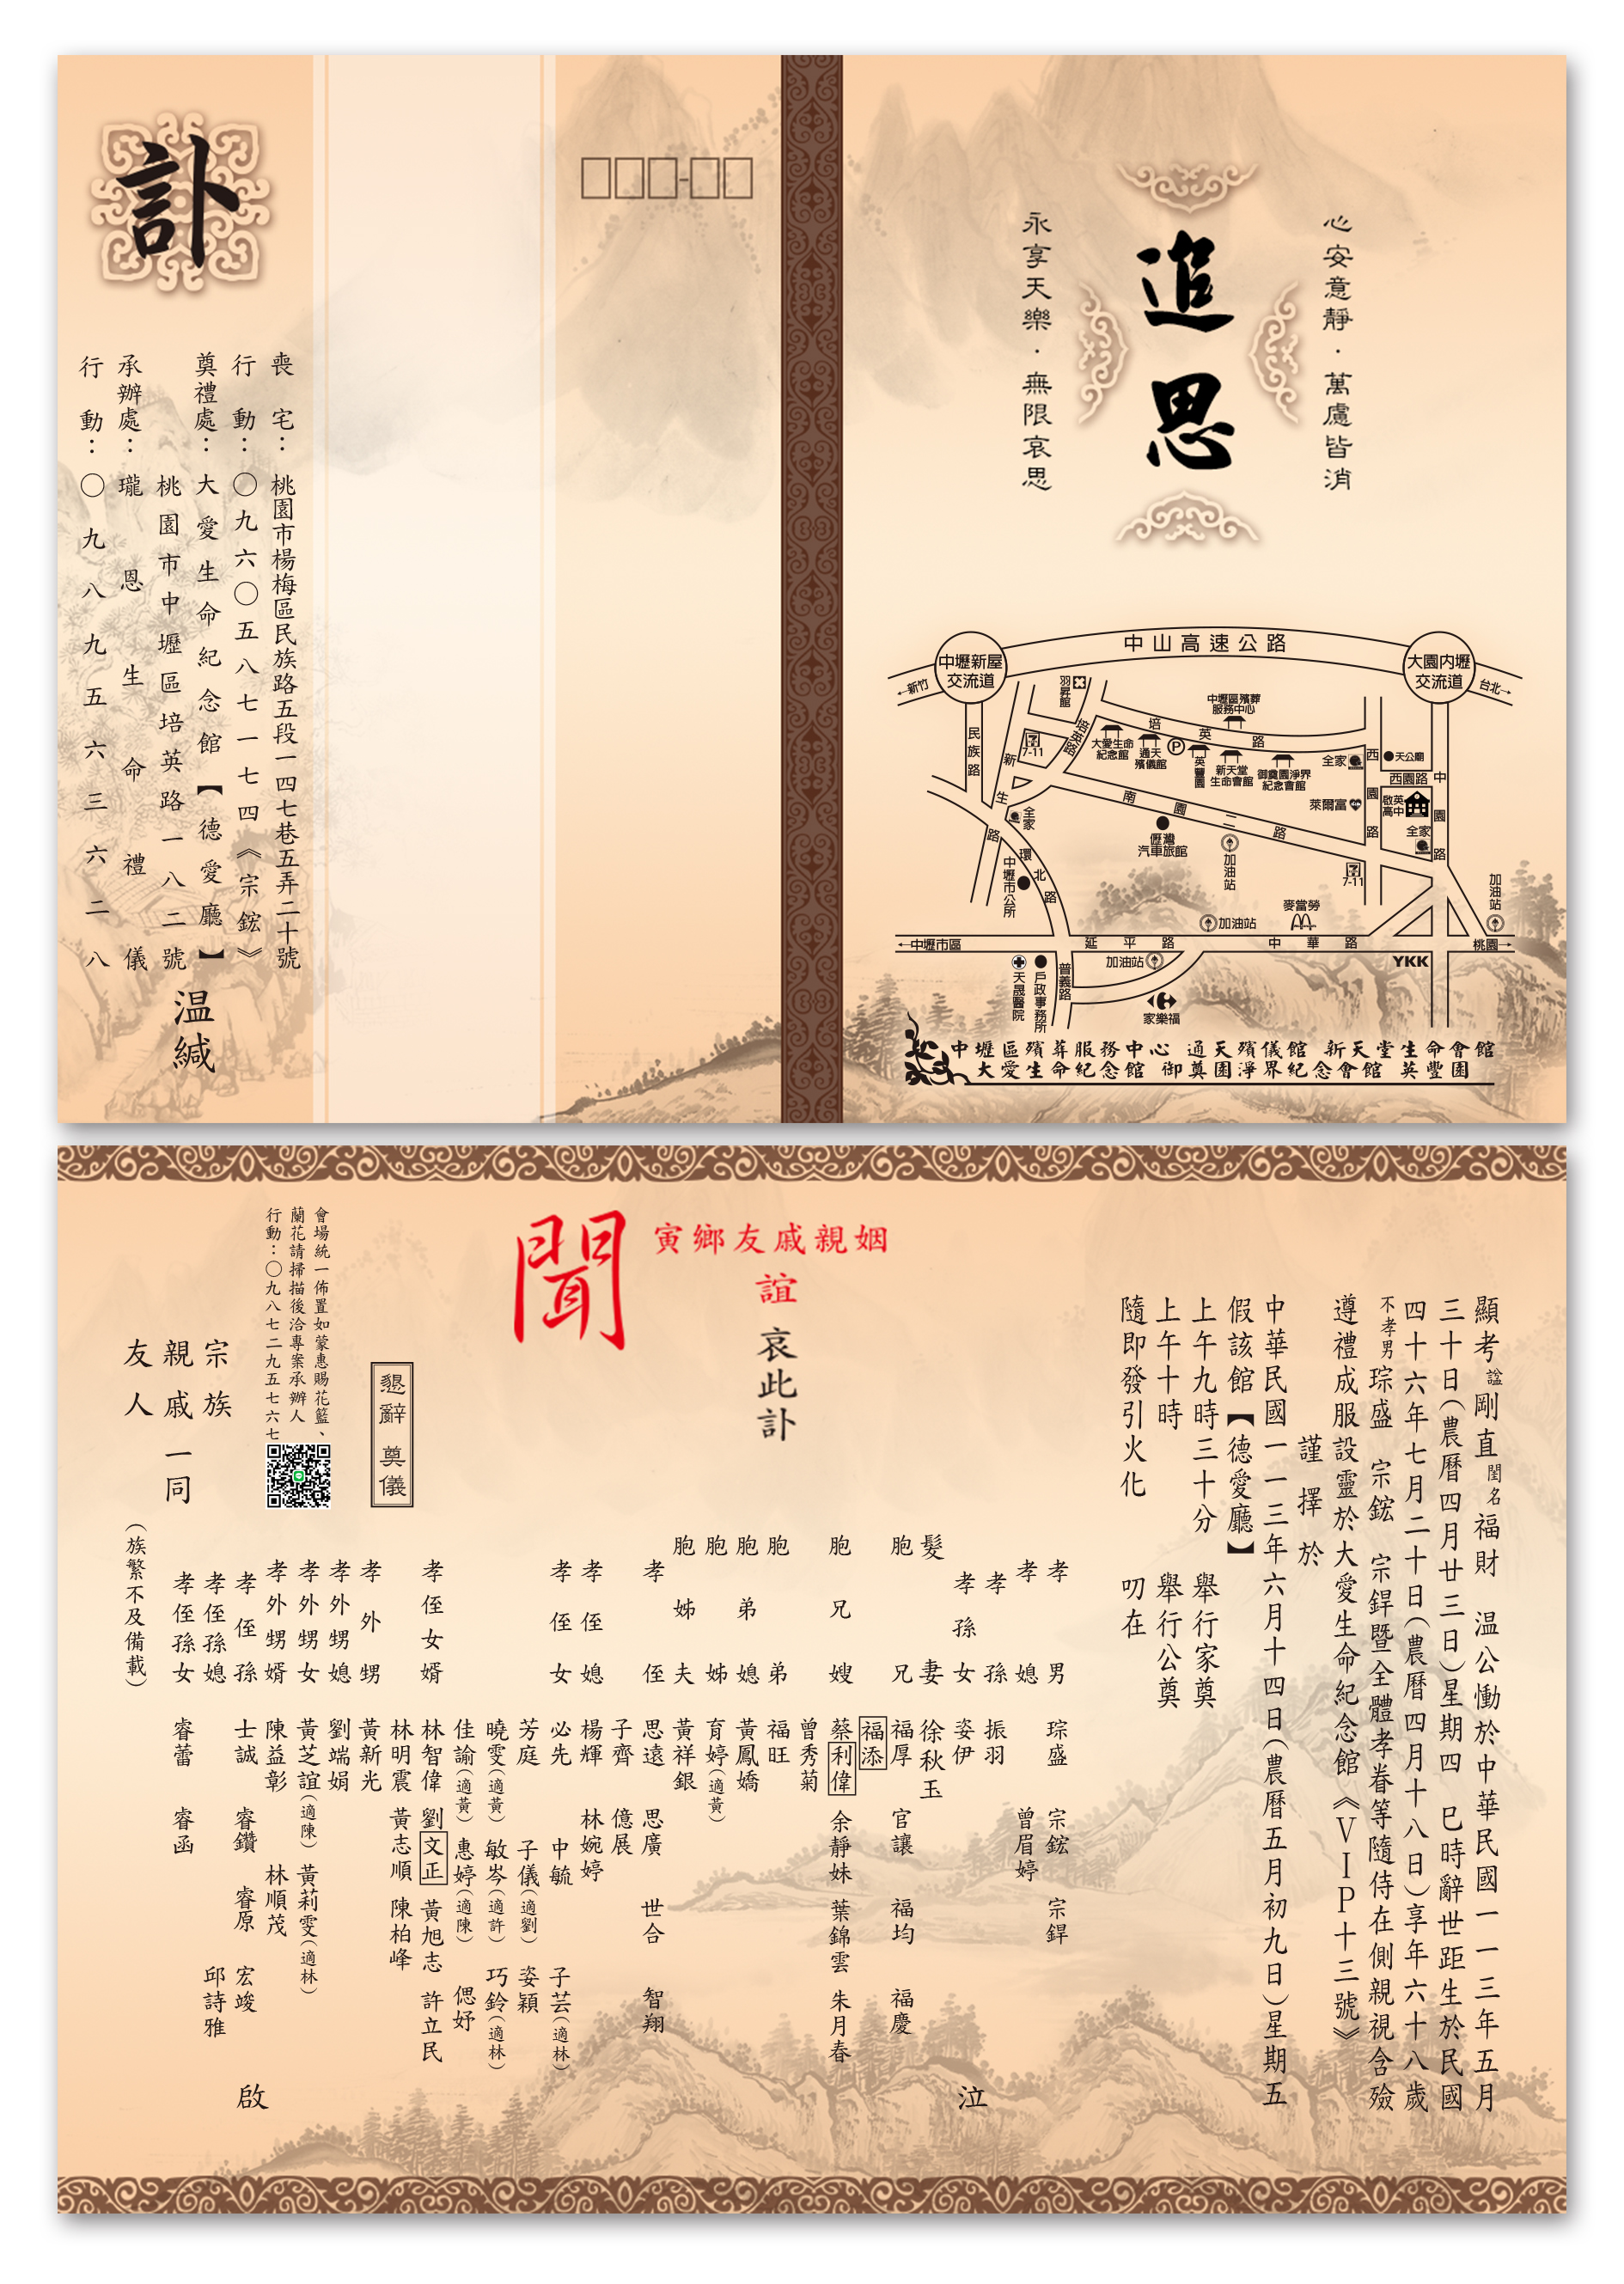 心安意靜．萬慮皆消
追思
永享天樂．無限哀思
中山高速公路
中壢新屋交流道
大園內壢交流道
←新竹
台北→
羽昇館
中壢區殯葬服務中心
民族路
7-11
培英路
培英路
大愛生命紀念館
通天殯儀館
P
英豐園
新天堂生命會館
御奠園淨界紀念會館
全家
西園路
天公廟
西園路
中園路
新生路
全家
南園二路
萊爾富
啟英高中
全家
偃灣汽車旅館
加油站
環北路
中壢市公所
7-11
加油站
加油站
麥當勞
←中壢市區
延平路
中華路
桃園→
天晟醫院
戶政事務所
普義路
加油站
YKK
家樂福
中壢區殯葬服務中心 通天殯儀館 新天堂生命會館
大愛生命紀念館 御奠園淨界紀念會館 英豐園
□□□-□□
訃
喪宅：桃園市楊梅區民族路五段一四七巷五弄二十號
行動：〇九六〇五八七一七七四《宗鋐》
奠禮處：大愛生命紀念館【德愛廳】
桃園市中壢區培英路一八二號
承辦處：瓏恩生命禮儀
行動：〇九八九五六三六二八
温緘
顯考諡剛直閨名福財 温公慟於中華民國一一三年五月
三十日(農曆四月廿三日)星期四 巳時辭世距生於民國
四十六年七月二十日(農曆四月十八日)享年六十八歲
不孝男琮盛 宗鋐 宗銲暨全體孝眷等隨侍在側親視含殮
遵禮成服設靈於大愛生命紀念館《VIP十三號》
謹擇於
中華民國一一三年六月十四日(農曆五月初九日)星期五
假該館【德愛廳】
上午九時三十分 舉行家奠
上午十時 舉行公奠
隨即發引火化 叨在
姻親戚友鄉寅
誼 哀此訃
聞
孝男 琮盛 宗鋐 宗銲
孝媳 曾眉婷
孝孫 振羽
孝孫女 姿伊
髮妻 徐秋玉
胞兄 福厚 官讓 福均 福慶
福添
胞兄嫂 蔡利偉 余靜妹 葉錦雲 朱月春
曾秀菊
胞弟 福旺
胞弟媳 黃鳳嬌
胞姊 育婷(適黃)
胞姊夫 黃祥銀
孝侄 思遠 思廣 世合 智翔
子齊 億展
孝侄媳 楊輝 林婉婷
孝侄女 必先 中毓 子芸(適林)
芳庭 子儀(適劉) 姿穎
曉雯(適黃) 敏岑(適許) 巧鈴(適林)
佳諭(適黃) 惠婷(適陳) 偲妤
孝侄女婿 林智偉 劉文正 黃旭志 許立民
林明震 黃志順 陳柏峰
孝外甥 黃新光
孝外甥媳 劉端娟
孝外甥女 黃芝誼(適陳) 黃莉雯(適林)
孝外甥婿 陳益彰 林順茂
孝侄孫 士誠 睿鑽 睿原 宏竣
孝侄孫媳 邱詩雅
孝侄孫女 睿蕾 睿函
(族繁不及備載)
泣
啟
懇辭 奠儀
會場統一佈置如蒙惠賜花籃、
蘭花請掃描後洽專案承辦人
行動：〇九八七二九五七六七
宗族
親戚一同
友人